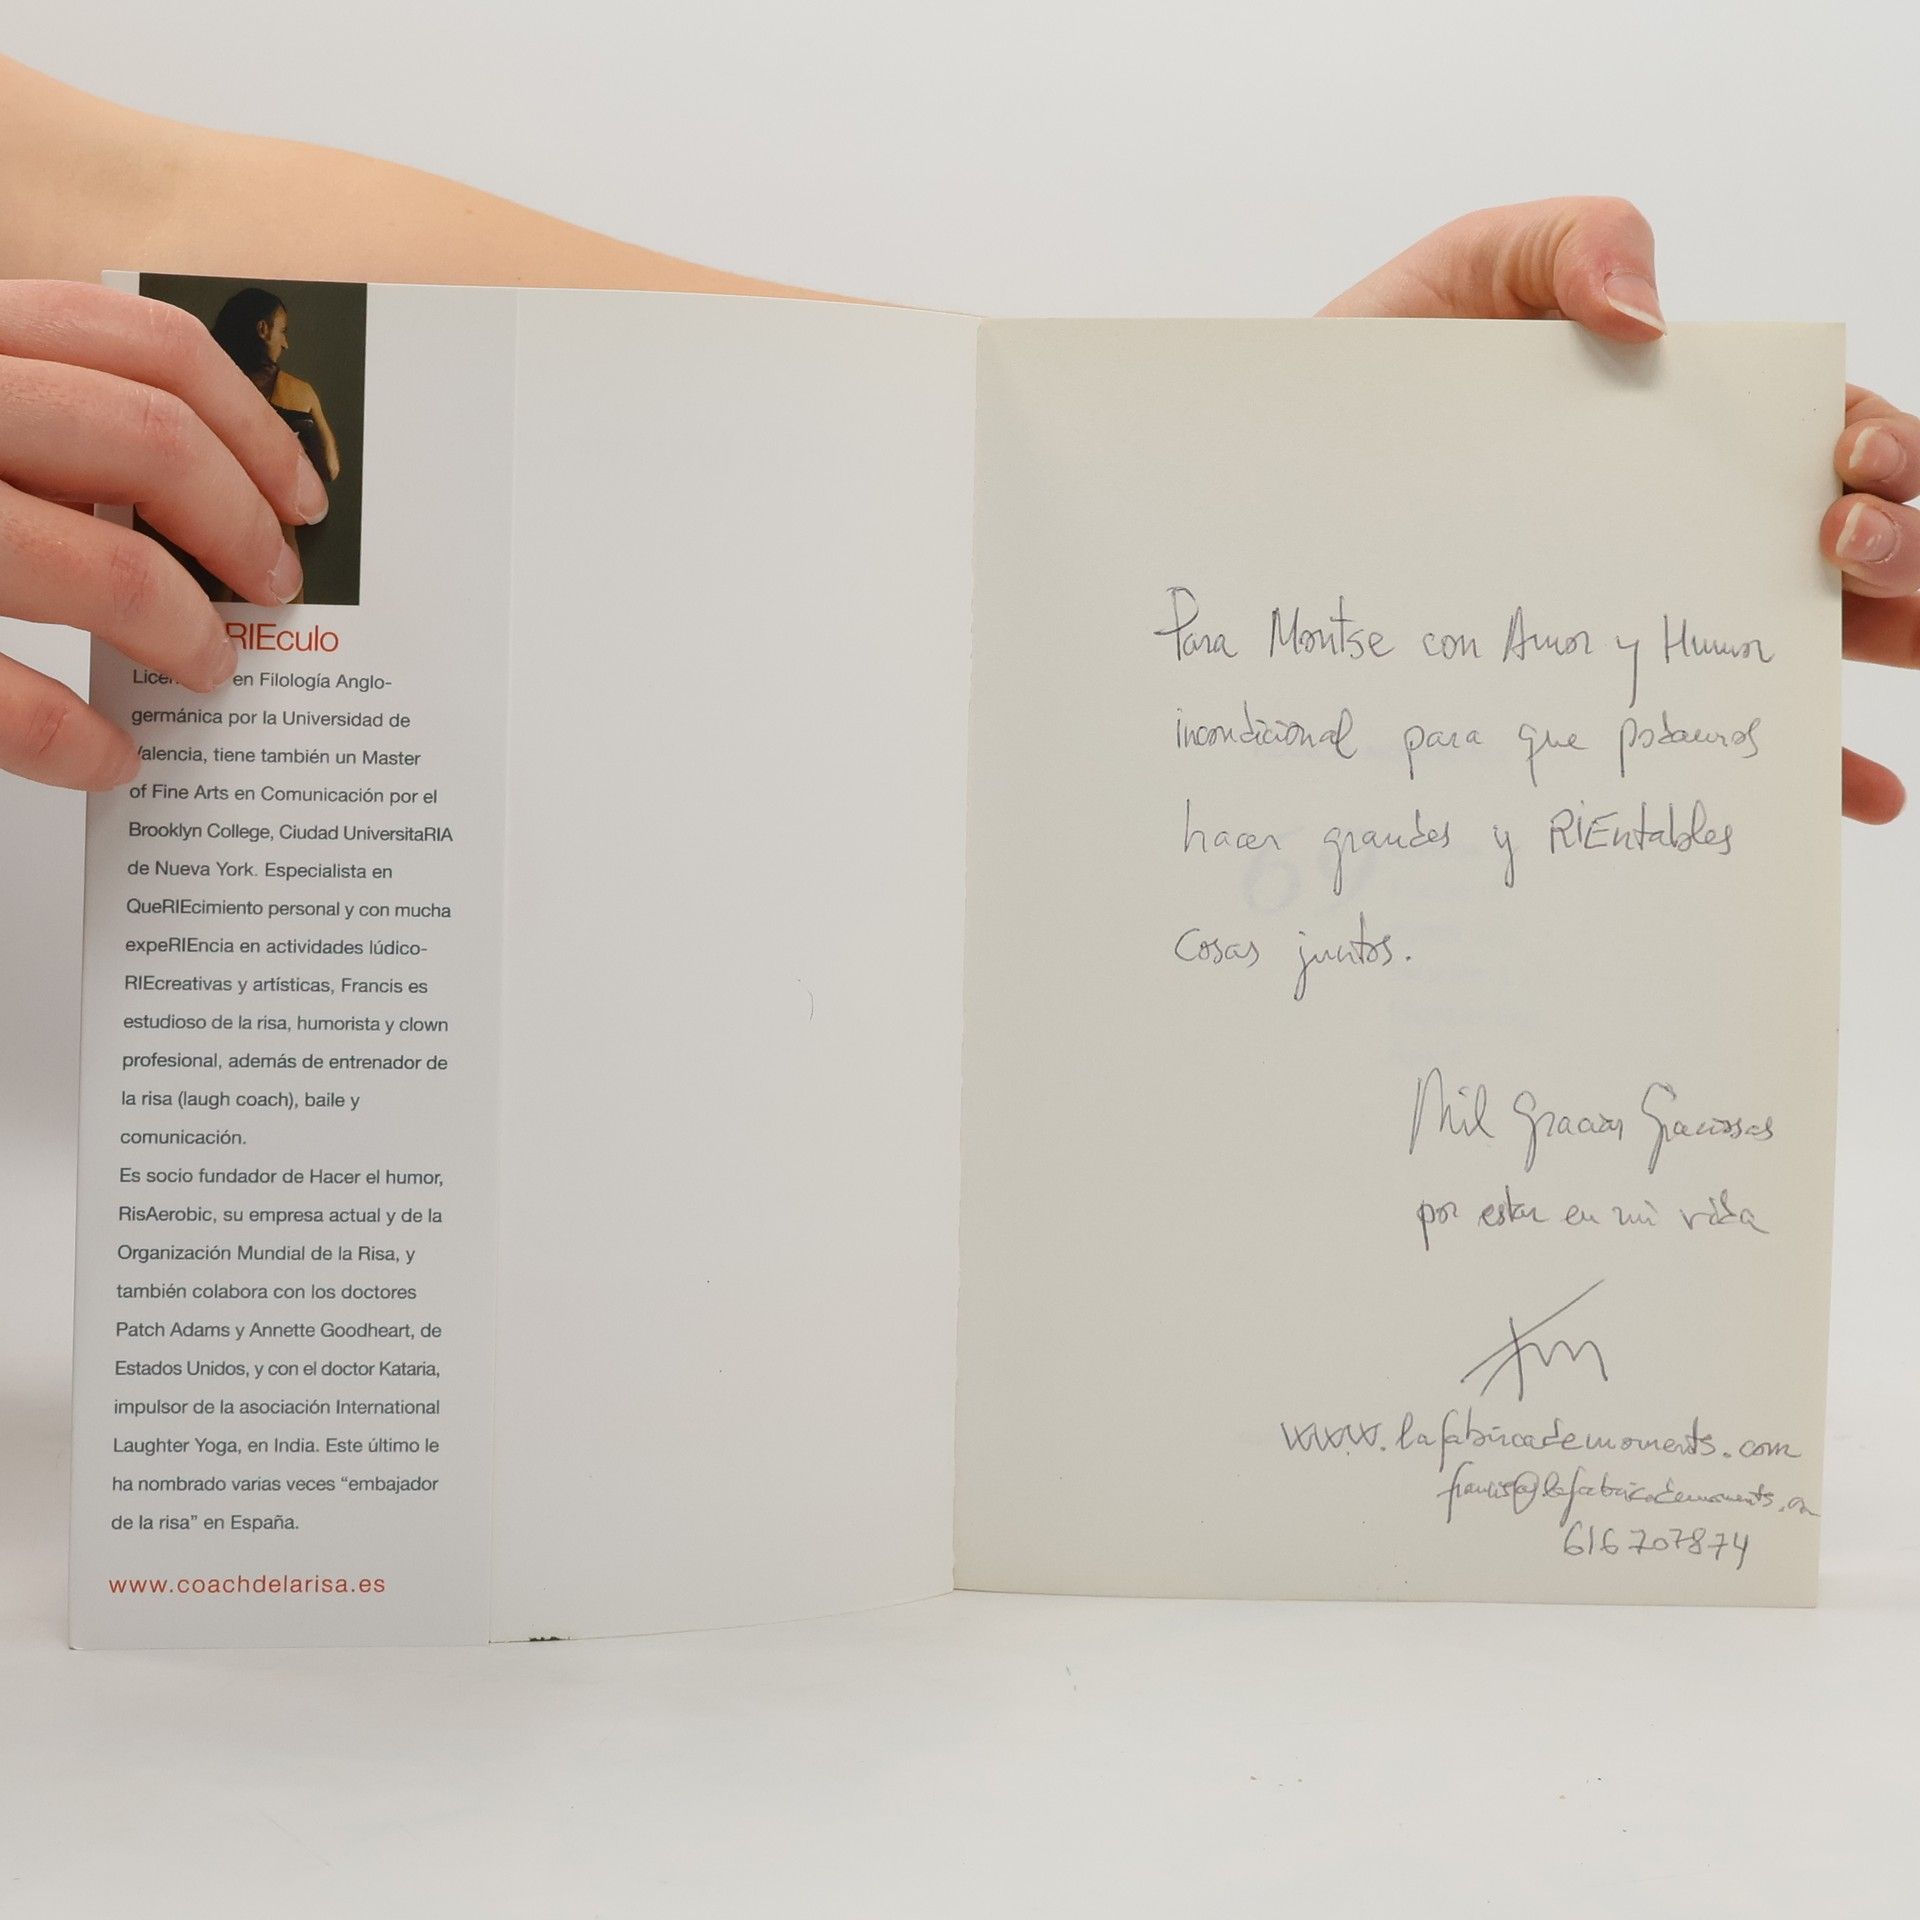 RIEculo
en Filología Anglo-
germánica por la Universidad de
Valencia, tiene también un Master
of Fine Arts en Comunicación por el
Brooklyn College, Ciudad UniversitaRIA
de Nueva York. Especialista en
QueRIEcimiento personal y con mucha
expeRIEncia en actividades lúdico-
RIEcreativas y artísticas, Francis es
estudioso de la risa, humorista y clown
profesional, además de entrenador de
la risa (laugh coach), baile y
comunicación.
Es socio fundador de Hacer el humor,
RisAerobic, su empresa actual y de la
Organización Mundial de la Risa, y
también colabora con los doctores
Patch Adams y Annette Goodheart, de
Estados Unidos, y con el doctor Kataria,
impulsor de la asociación International
Laughter Yoga, en India. Este último le
ha nombrado varias veces “embajador
de la risa” en España.
www.coachdelarisa.es
Para Montse con Amor y Humor
incondicional para que podamos
hacer grandes y RIEntables
cosas juntos.
Mil Gracias Graciosas
por estar en mi vida
www.lafabricademoments.com
616707874